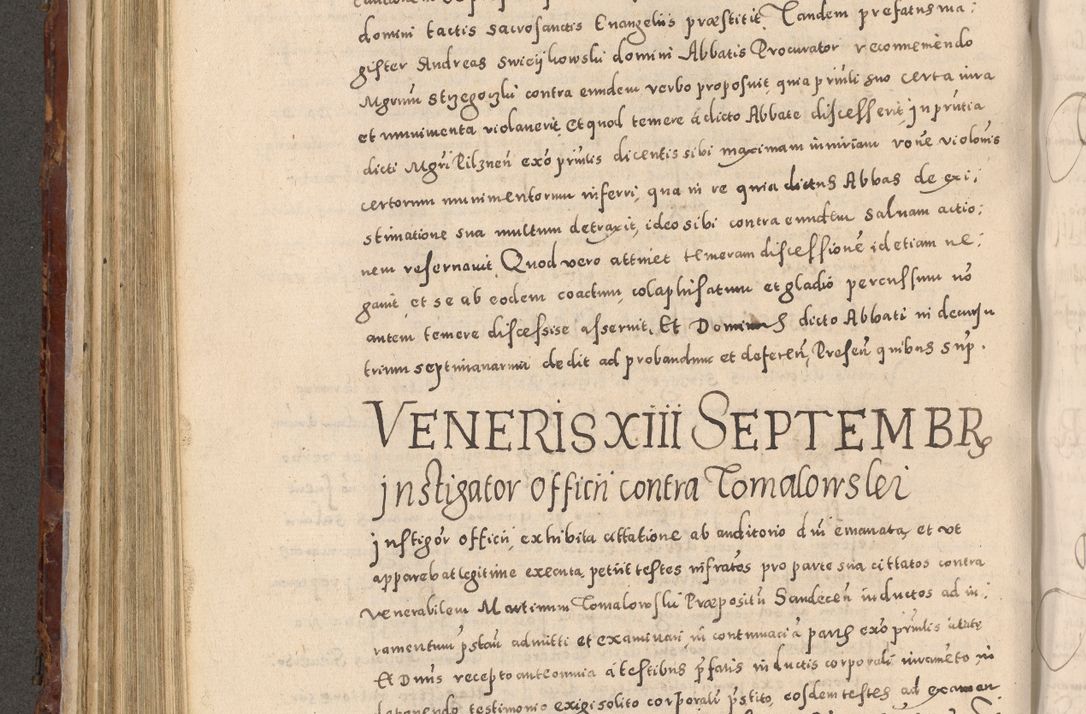 domini tactis sacrosanctis Euangeliis præstitit Tandem prefatus ma:
gister Andreas Swieijkowski domini Abbatis Procurator reconueniendo
Mgrum Strzegoczki contra eundem verbo proposuit quia priuili suo certa iura
et munimenta violauerit Et quod temere á dicto Abbate discesserit In prntia
dicti Mgri Pilznen exo priuilis dicentis sibi maximam iniuriam rone violonis
certorum munimentorum inferri, qua in re quia dictus Abbas de exi:
stimatione sua multum detraxit, ideo sibi contra eundem saluam actio:
nem reseruauit Quod vero attinet temeram discessione id etiam ne:
gauit et se ab eodem coactum, colaphisatum et gladio percussum nō
autem temere discessise asseruit. Et Dominus dicto Abbati in decursu
trium septimanarum dedit ad probandum et deferen, Presen quibus sup.
VENERIS XIII SEPTEMBR
jnstigator officii contra Tomalowskei
jnstigor officii, exhibita cittatione ab auditorio dni emanata, et vt
apparebat legitime executa, petiit testes infratos pro parte sua cittatos contra
venerabilem Martinum Tomalowski Præpositū Sandecen inductos ad iu:
ramentum pstan admitti et examinari in contumacia partis exo priuilis
Et Dnus recepto ante omnia á testibus pfatis inductis corporali iuramēto
testimonio exigi solito corporali pstito, eosdem testes ad examen